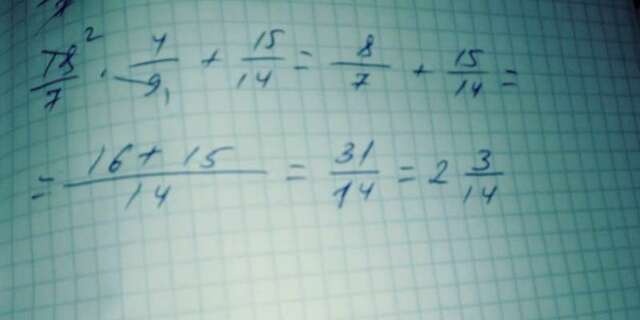 18²/7 · 4/9₁ + 15/14 = 8/7 + 15/14 =
= 16 + 15/14 = 31/14 = 2 3/14